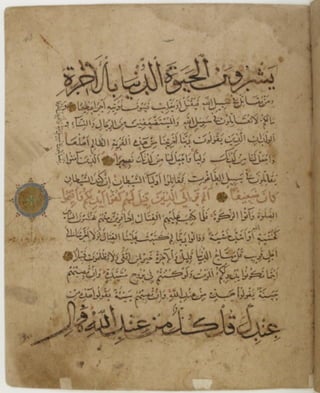 يشرون الحيوة الدنيا بالاخرة
ومن يقاتل في سبيل الله فيقتل او يغلب فسوف نؤتيه اجرا عظيما وما
لكم لا تقاتلون في سبيل الله والمستضعفين من الرجال والنساء
والولدان الذين يقولون ربنا اخرجنا من هذه القرية الظالم اهلها
واجعل لنا من لدنك وليا واجعل لنا من لدنك نصيرا الذين امنوا
يقاتلون في سبيل الطاغوت فقاتلوا اولياء الشيطان ان كيد الشيطان
كان ضعيفا الم تر الى الذين قيل لهم كفوا ايديكم واقيموا
الصلوة واتوا الزكوة فلما كتب عليهم القتال اذا فريق منهم يخشون الناس
كخشية الله او اشد خشية وقالوا ربنا لم كتبت علينا القتال لولا اخرتنا
الى اجل قريب قل متاع الدنيا قليل والاخرة خير لمن اتقى ولا تظلمون فتيلا
اينما تكونوا يدرككم الموت ولو كنتم في بروج مشيدة وان تصبهم
حسنة يقولوا هذه من عند الله وان تصبهم سيئة يقولوا هذه من
عندك قل كل من عند الله فمال